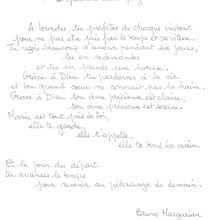 A Lourdes, tu profites de chaque instant
pour ne pas être pris par le temps et sa vitesse.
Tu reçois beaucoup d'amour pendant six jours,
tu en redemandes
et tu en prends une bonne.
Grâce à Dieu, tu pardonnes à la vie
et ton grand cœur ne connaît pas la haine.
Grâce à Dieu ton âme précieuse est claire,
ton âme précieuse est sereine.
Marie est tout près de toi,
elle te garde,
elle t'appelle,
elle te tend la main.
Et le jour du départ
tu avances le temps
pour revenir au pèlerinage de demain.
Bruno Margurian